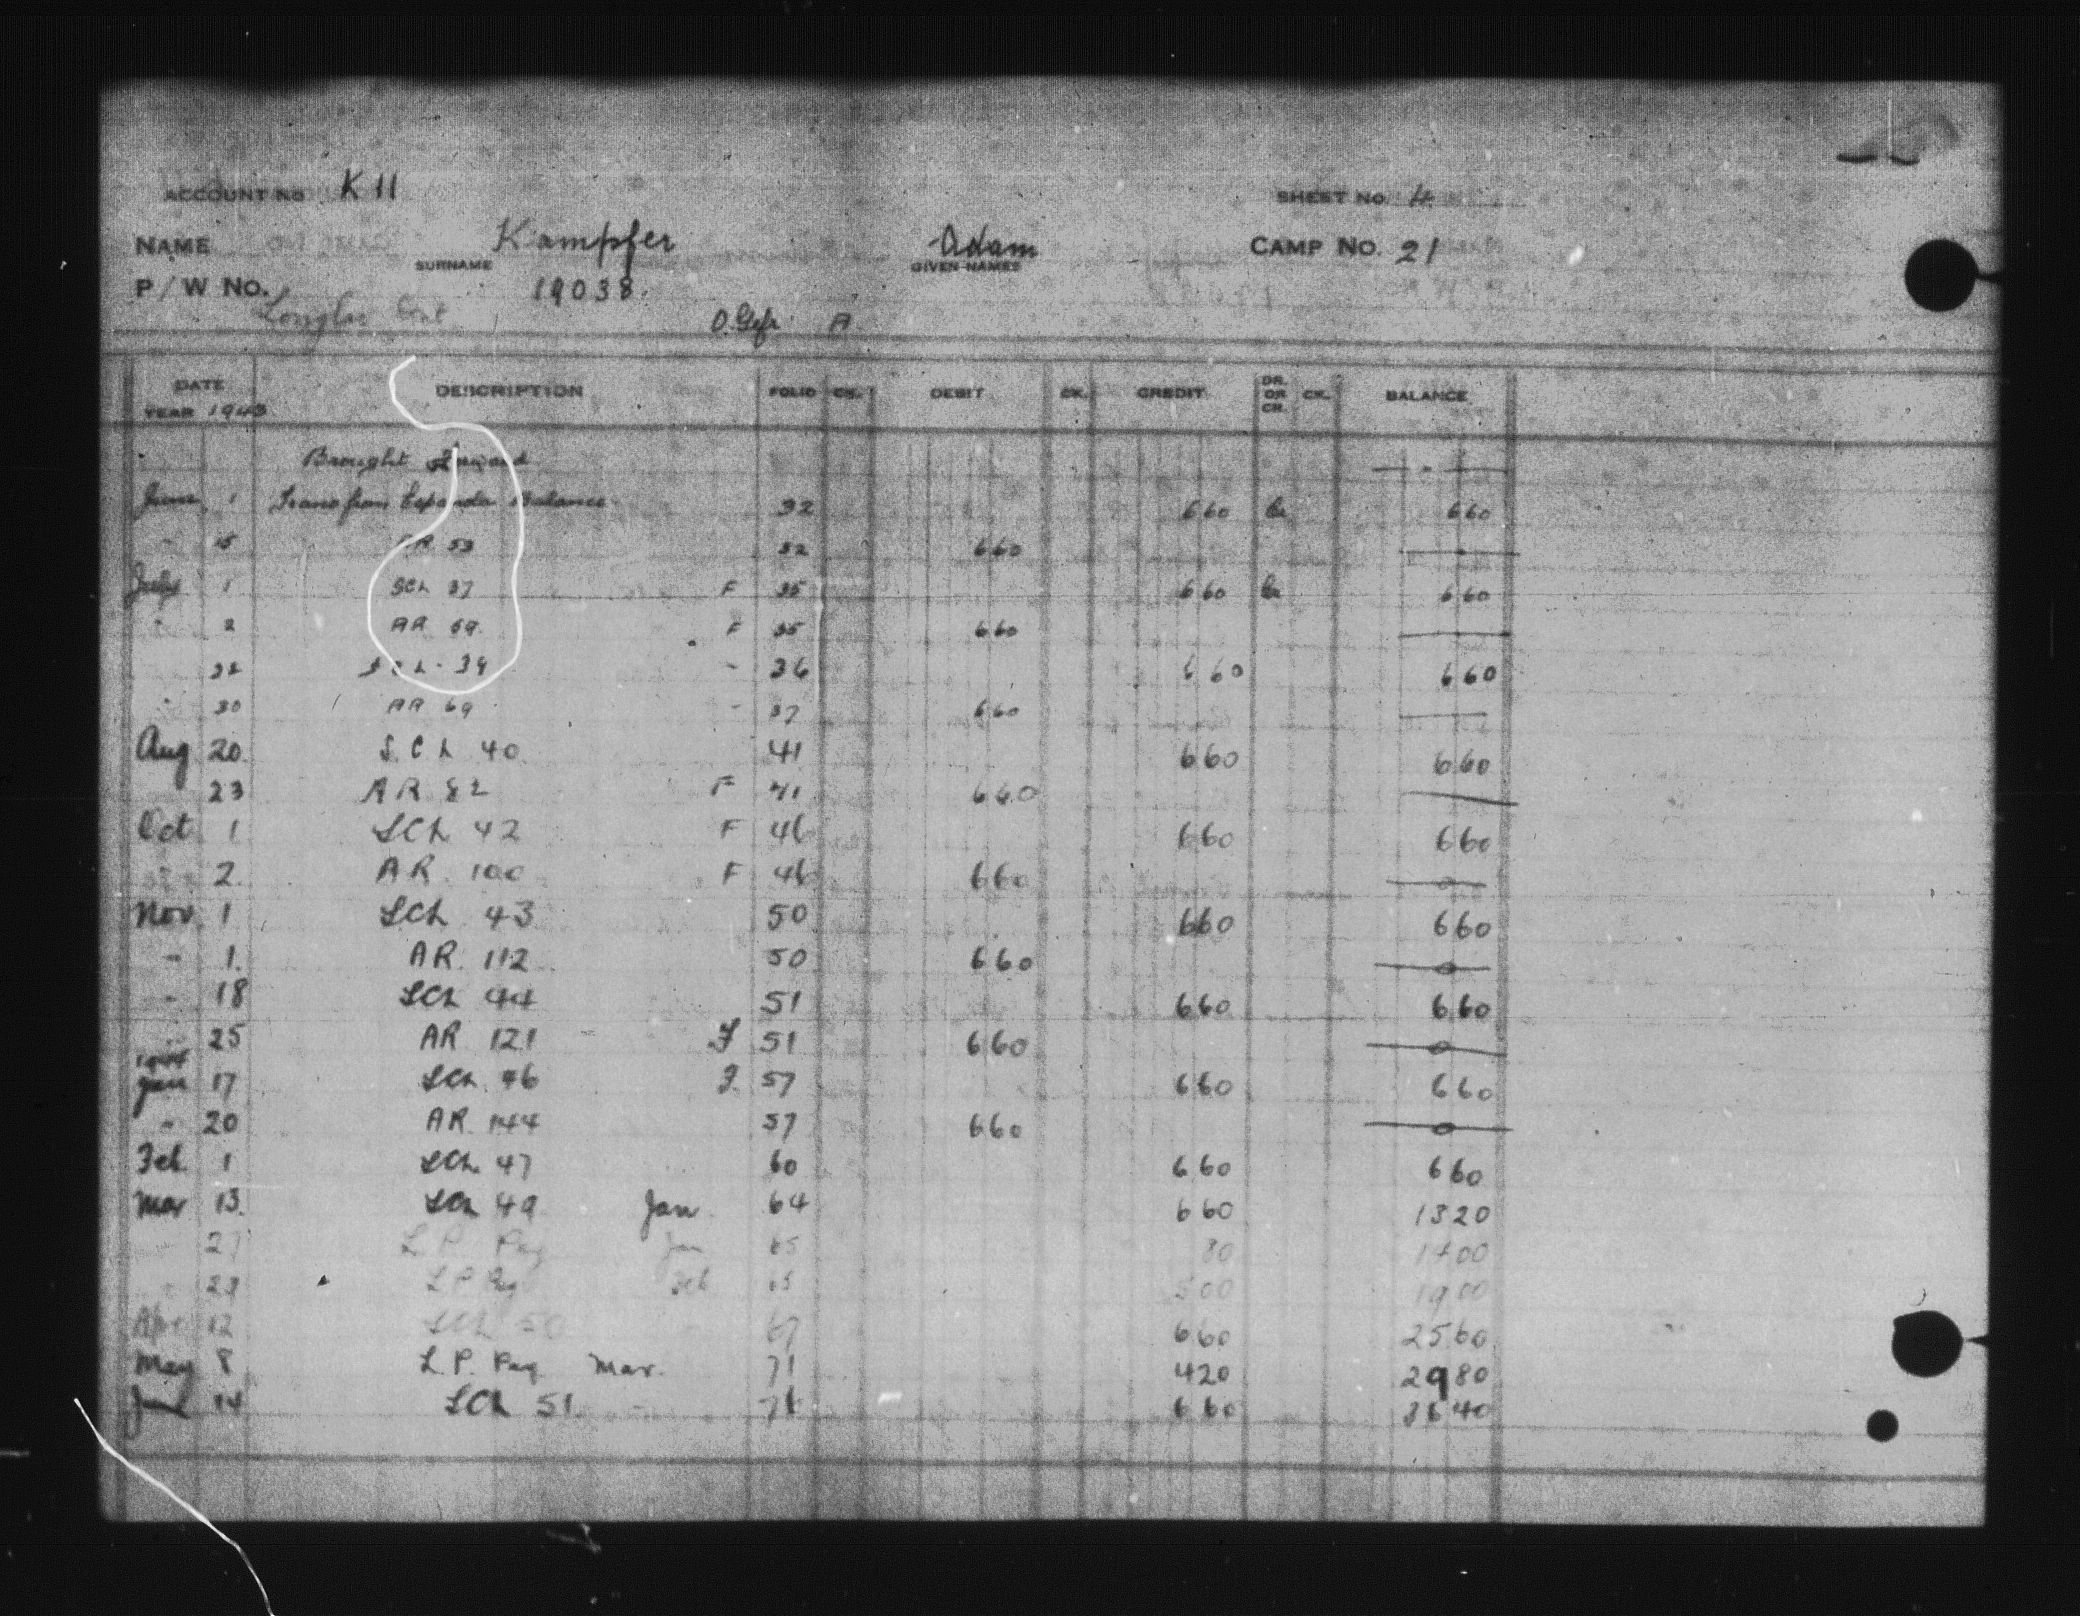 ACCOUNT NO K 11 SHEET NO. 4
NAME Kampfer Adam CAMP NO. 21
SURNAME GIVEN NAMES
P/W No. 19038
O.Gefr A
DATE DESCRIPTION FOLIO CK. DEBIT CK. CREDIT DR. OR CR. CK. BALANCE
YEAR 1943
Brought Forward - - -
June 1 Trans from Balance 32 660 Cr 660
" 15 AR 53 32 660
July 1 SCh 37 F 35 660 Cr 660
" 2 AR 59 F 35 660
22 SCh - 39 - 36 660 660
" 30 AR 69 - 37 660
Aug 20 S.Ch 40 41 660 660
23 AR 82 F 41 660
Oct 1 SCh 42 F 46 660 660
2 AR 100 F 46 660 0
Nov 1 SCh 43 50 660 660
" 1. AR 112 50 660 0
" 18 SCh 44 51 660 660
25 AR 121 F 51 660 0
1944
Jan 17 SCh 46 F 57 660 660
" 20 AR 144 57 660 0
Feb 1 SCh 47 60 660 660
Mar 13. SCh 49 Jan 64 660 1320
27 L P Pay Jan 65 80 1400
L P Pay Feb 65 500 1900
Apr 12 SCh 50 67 660 2560
May 8 L.P. Pay Mar. 71 420 2980
June 14 SCh 51 76 660 3640